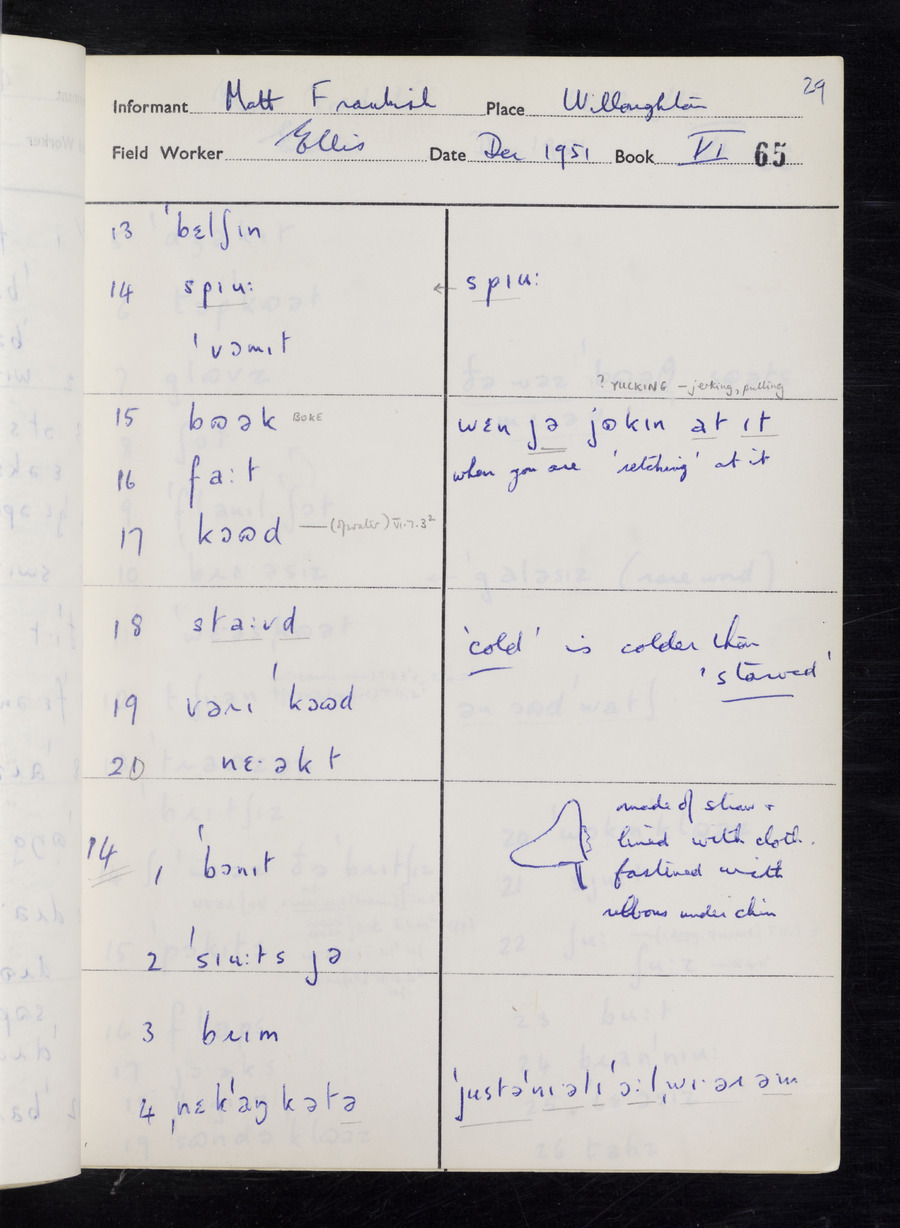 29
Informant Matt Frankish Place Willoughton
Field Worker Ellis Date Dec 1951 Book VI 65
13 ˈbɛlʃin
14 spɪu: ← spɪu:
ˈvɔmɪt
? YUCKING – jerking, pulling
15 bʊək BOKE wɛn jə jʊkɪn at ɪt
16 fa:t when you are 'retching' at it
17 kɔʊd — VI.7.3²
18 sta:vd 'cold' is colder than
'starved'
19 vərɪ ˈkɔʊd
20 nɛ·əkt
made of straw +
14 1 ˈbɔnɪt lined with cloth.
fastened with
ribbons under chin
2 ˈsɪu:ts jə
3 brɪm
4 ˌnɛkˈaŋkətə ˈjustəˈnɪəlɪˈɔ:lˌwɪ·ər əm